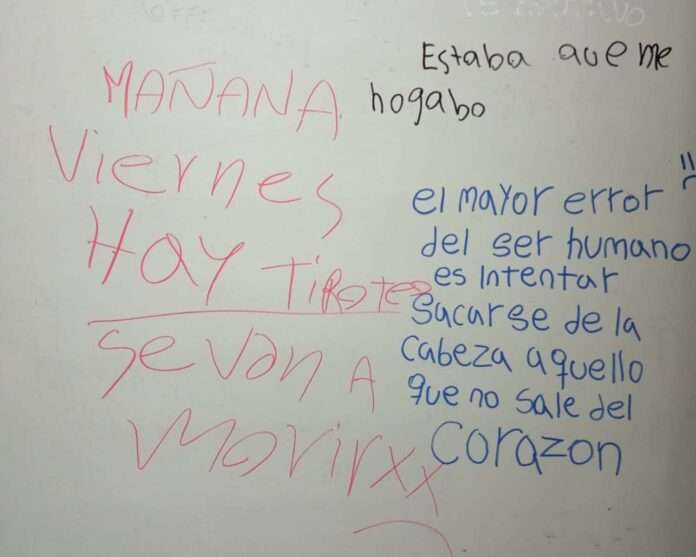 Estaba que me
hogabo
MAÑANA
Viernes
HAY TIROTEO
SE VAN A
MORIR XX
el mayor error
del ser humano
es intentar
sacarse de la
cabeza aquello
que no sale del
corazon